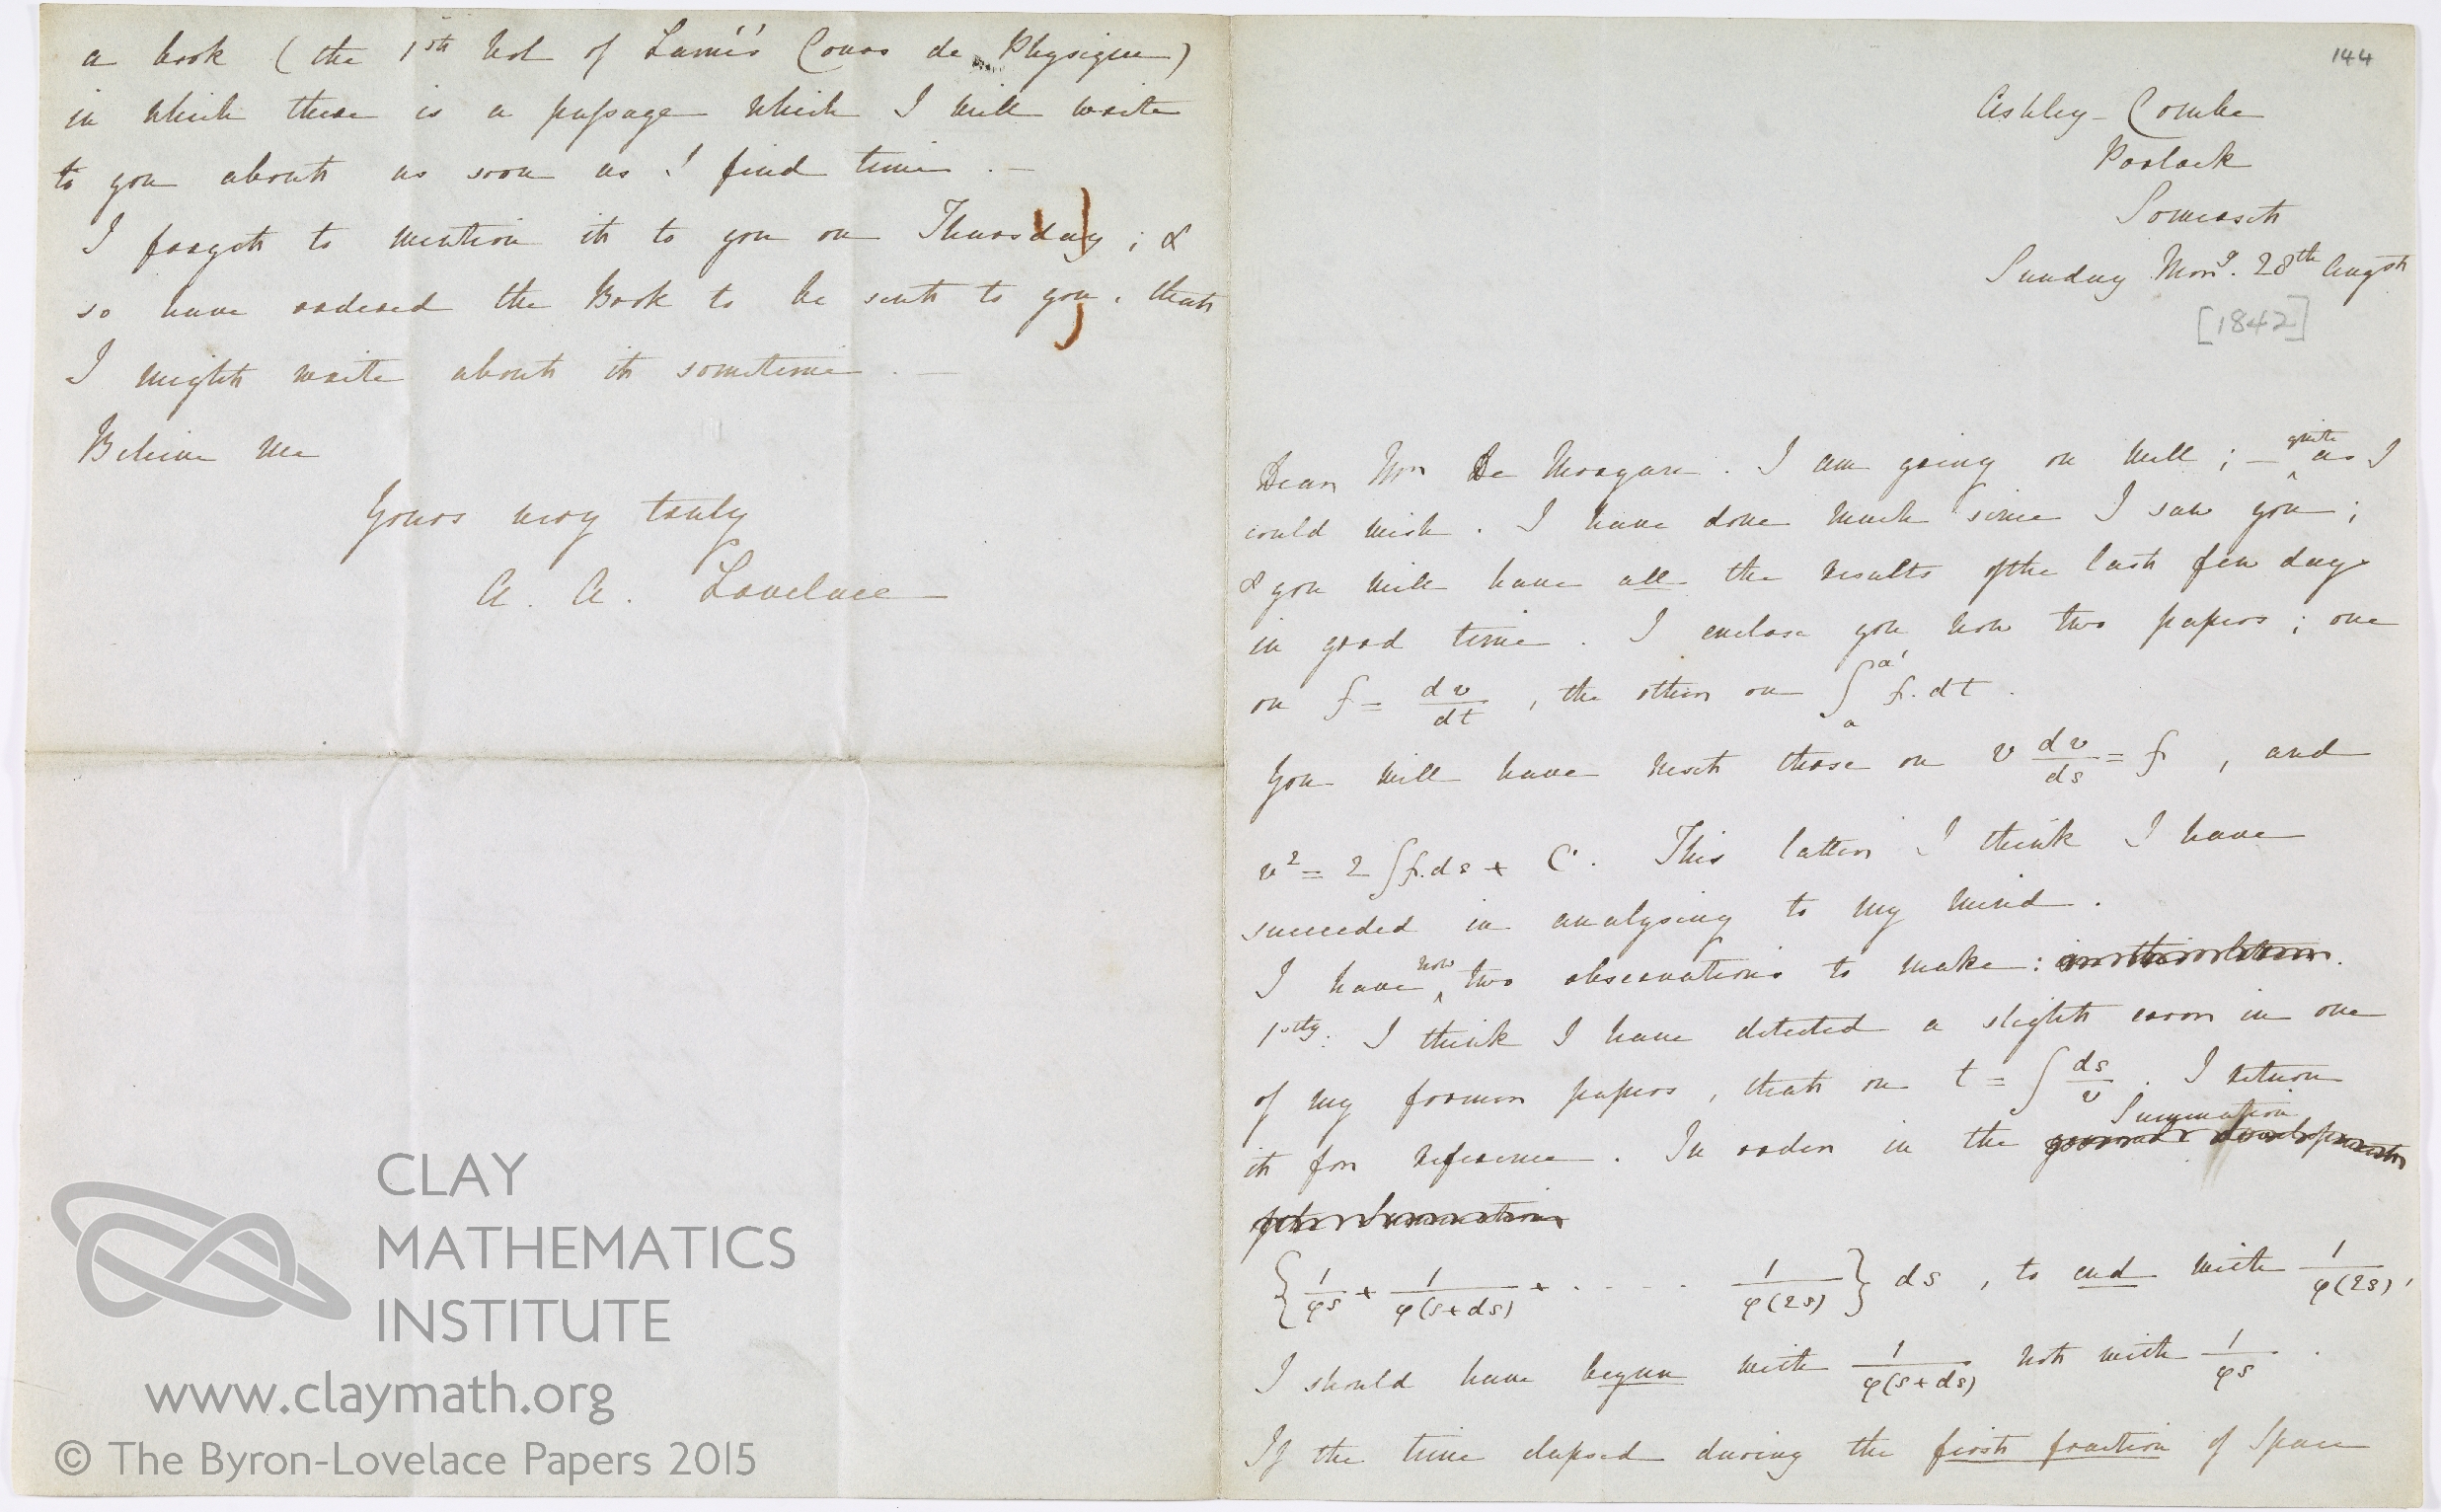 a book (the 1st Vol of Lamé's Cours de Physique)
in which there is a passage which I will write
to you about as soon as I find time. —
I forgot to mention it to you on Thursday; &
so have ordered the Book to be sent to you, that
I might write about it sometime. —
Believe me
Yours very truly
A. A. Lovelace
144
Ashley-Combe
Porlock
Somerset
Sunday Morng. 28th Augst
[1842]
Dear Mr De Morgan. I am going on well; — quite as I
could wish. I have done much since I saw you;
& you will have all the results of the last few days
in good time. I enclose you now two papers; one
on f = dv/dt, the other on ∫ₐᵃ' f.dt.
You will have next those on v dv/ds = f, and
v² = 2∫f.ds + C. This latter I think I have
succeeded in analysing to my mind.
I have now two observations to make:
1stly: I think I have detected a slight error in one
of my former papers, that on t = ∫ds/v. I return
it for reference. In order in the Summation
{1/φs + 1/φ(s+ds) + . - - - . 1/φ(2s)} ds, to end with 1/φ(2s),
I should have begun with 1/φ(s+ds) not with 1/φs.
If the time elapsed during the first fraction of Space
CLAY
MATHEMATICS
INSTITUTE
www.claymath.org
© The Byron-Lovelace Papers 2015